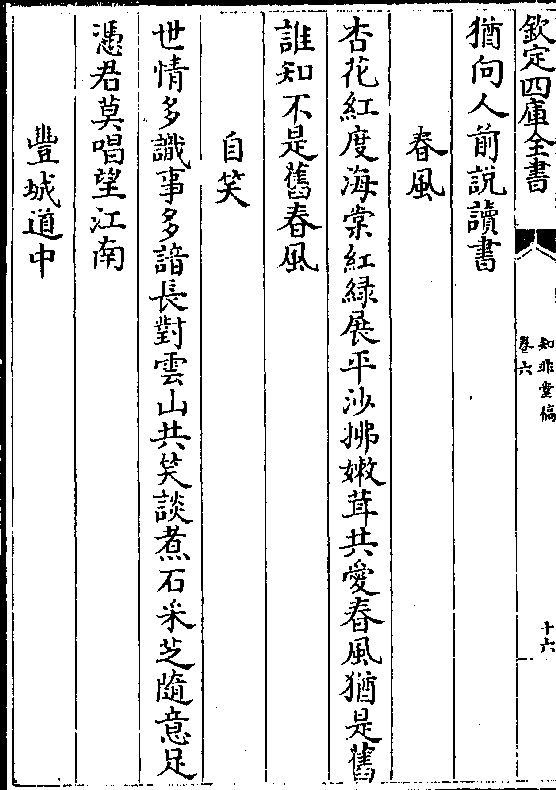 欽定四庫全書
知非堂稿
卷六
十六
猶向人前説讀書
春風
杏花紅度海棠紅緑展平沙拂嫩茸共愛春風猶是舊
誰知不是舊春風
自笑
世情多識事多諳長對雲山共笑談煮石采芝隨意足
憑君莫唱望江南
豐城道中